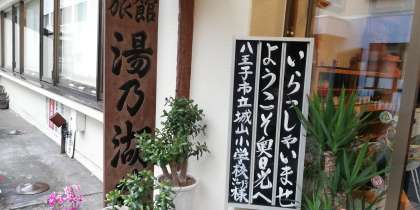 旅館
湯乃湖
いらっしゃいませ
ようこそ奥日光へ
八王子市立城山小学校御一行様